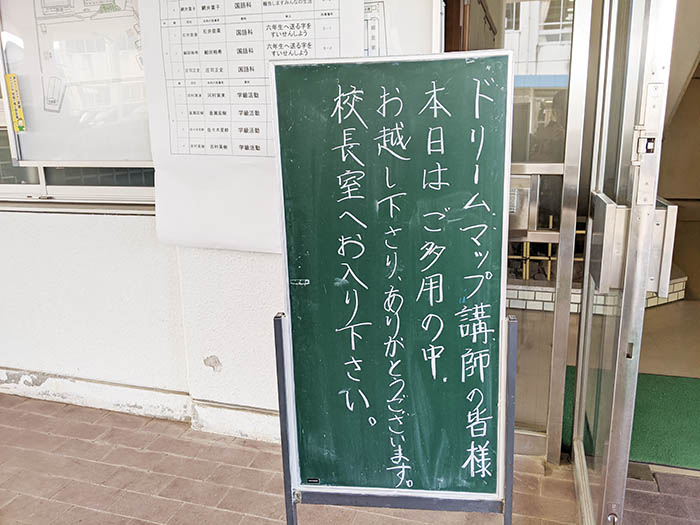 ドリームマップ講師の皆様
本日は ご多用の中
お越し下さり、ありがとうございます。
校長室へお入り下さい。
国語科
六年生へ送る字を
すいせんしよう
国語科
六年生へ送る字を
すいせんしよう
国語科
学級活動
学級活動
学級活動
学級活動